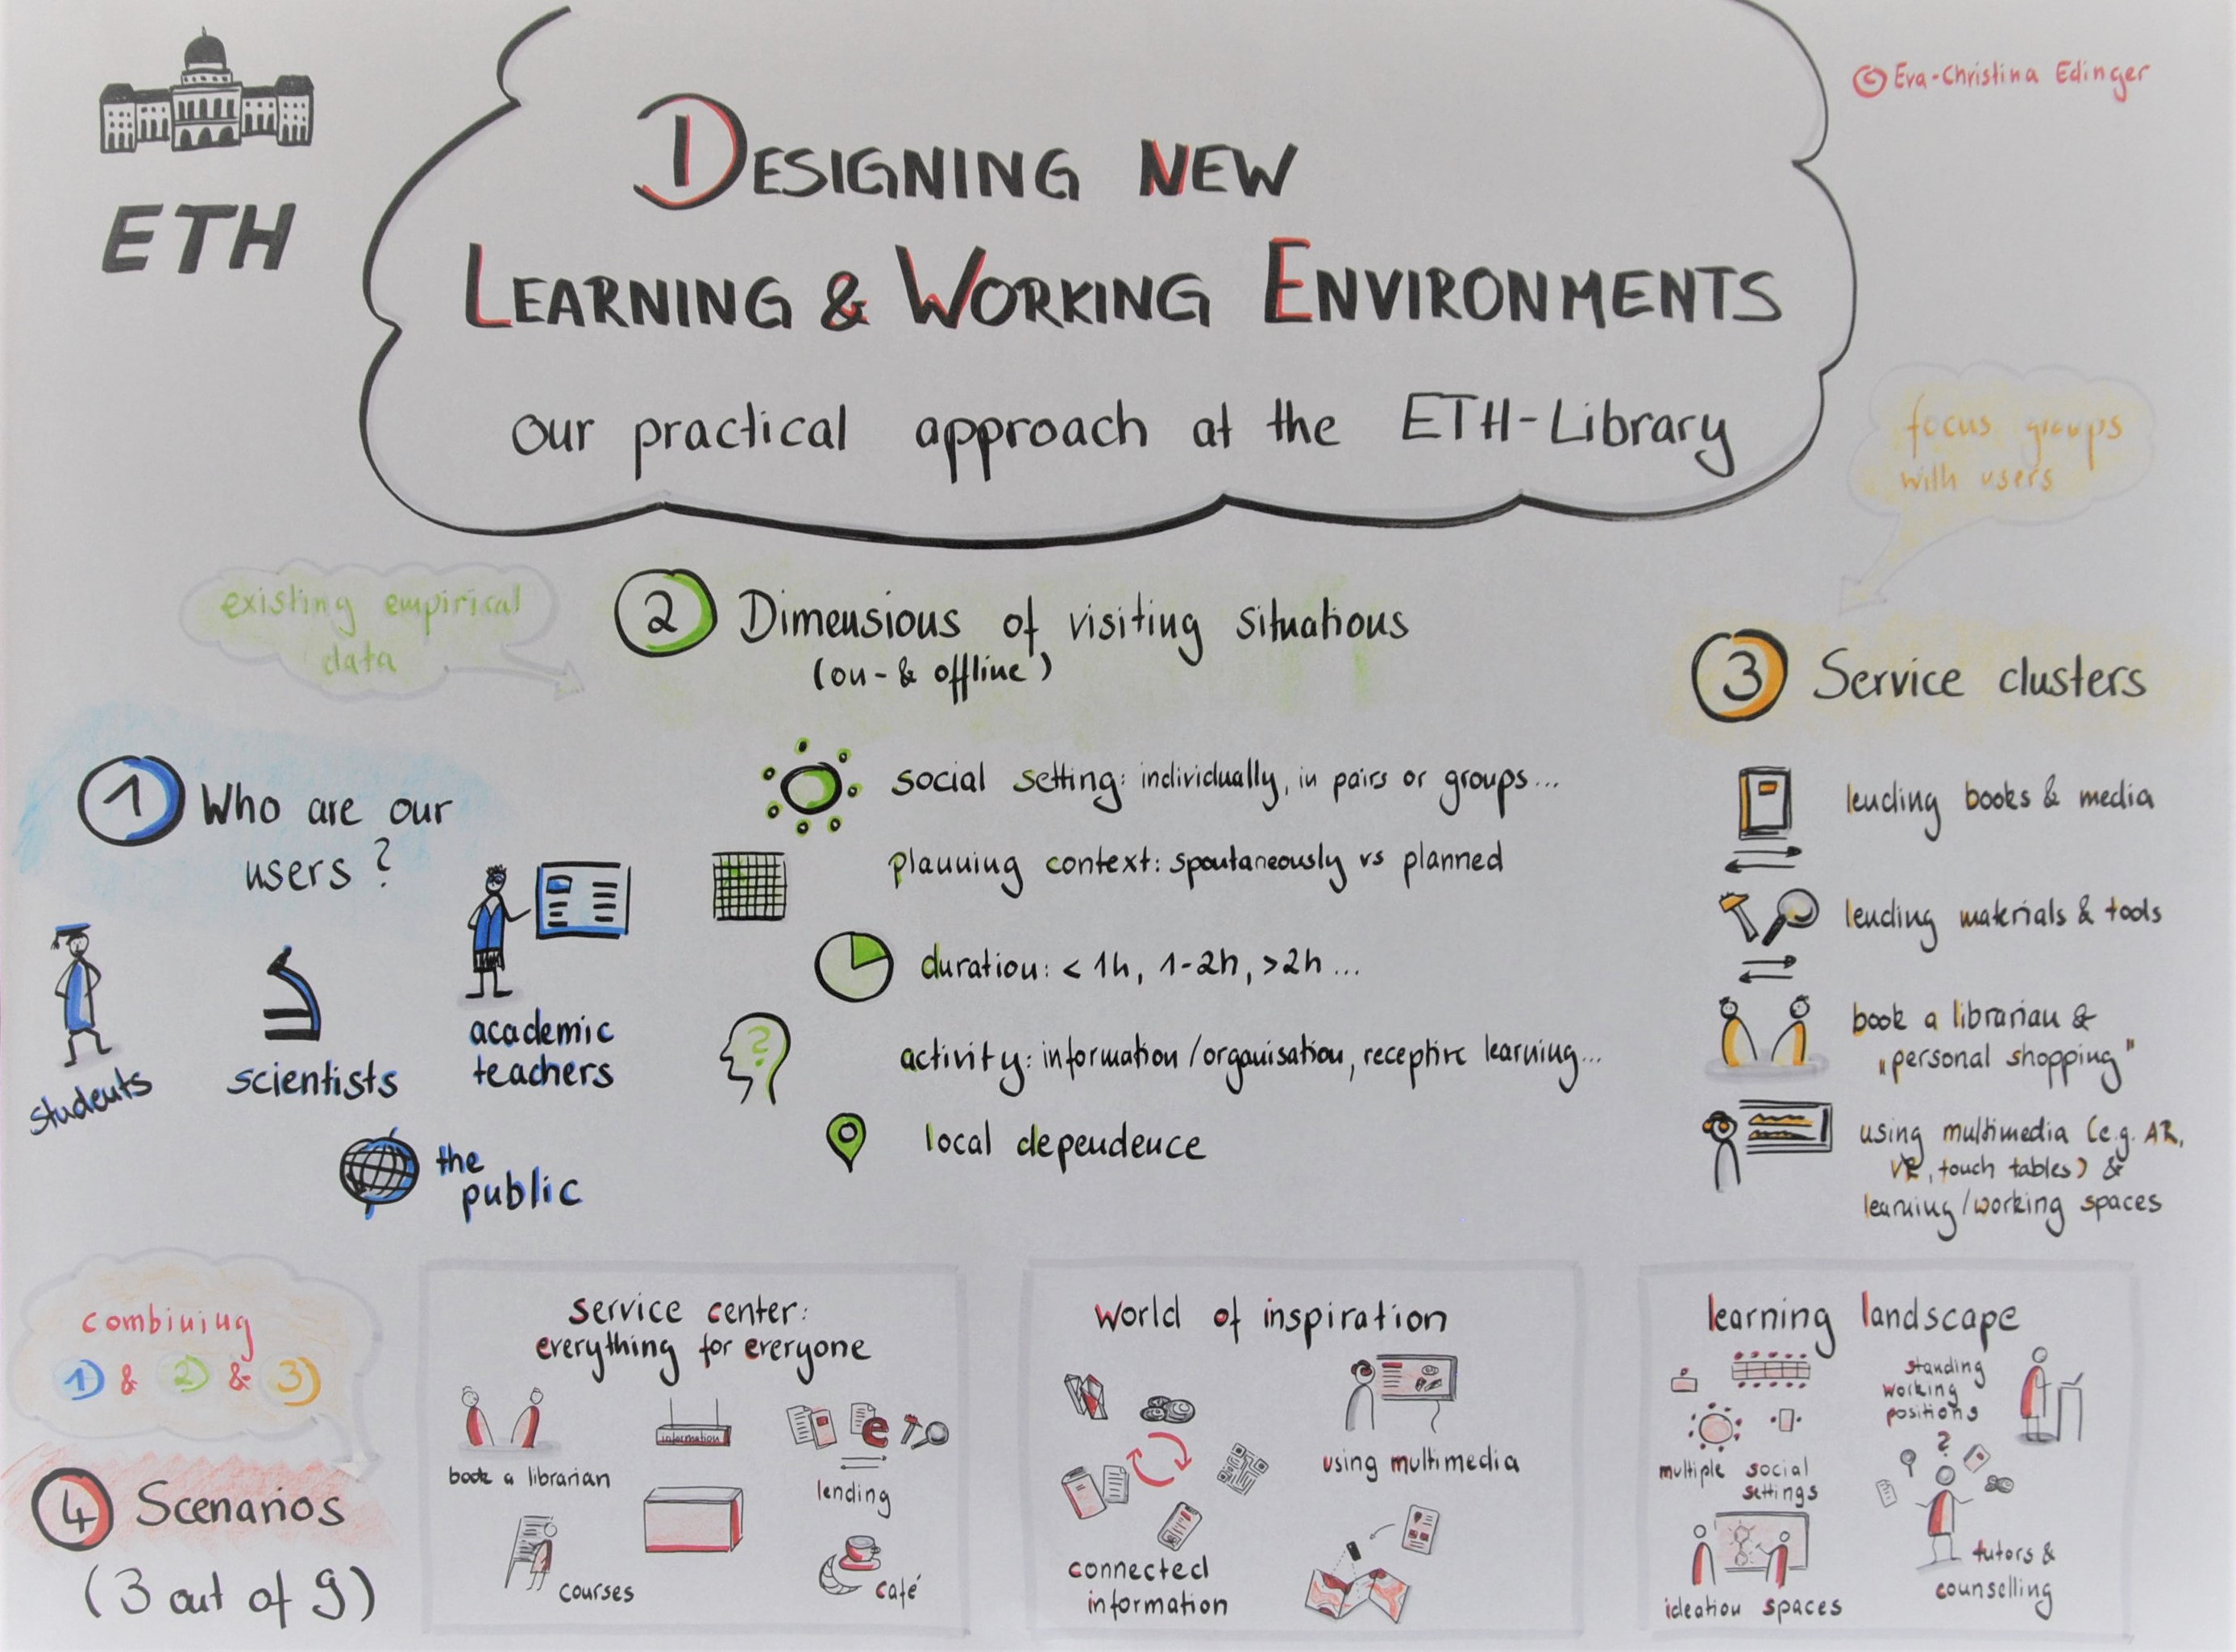 ETH
© Eva-Christina Edinger
DESIGNING NEW
LEARNING & WORKING ENVIRONMENTS
our practical approach at the ETH-Library
focus groups
with users
existing empirical
data
2 Dimensions of visiting situations
(on- & offline)
social setting: individually, in pairs or groups...
planning context: spontaneously vs planned
duration: < 1h, 1-2h, >2h ...
?
activity: information/organisation, receptive learning...
local dependence
3 Service clusters
lending books & media
lending materials & tools
book a librarian &
„personal shopping"
using multimedia (e.g. AR,
VR, touch tables) &
learning/working spaces
1 Who are our
users?
students
scientists
academic
teachers
the
public
combining
1) & 2) & 3)
4 Scenarios
(3 out of 9)
service center:
everything for everyone
book a librarian
information
e
lending
courses
café
world of inspiration
using multimedia
connected
information
learning landscape
standing
working
positions
multiple social
settings
?
ideation spaces
tutors &
counselling